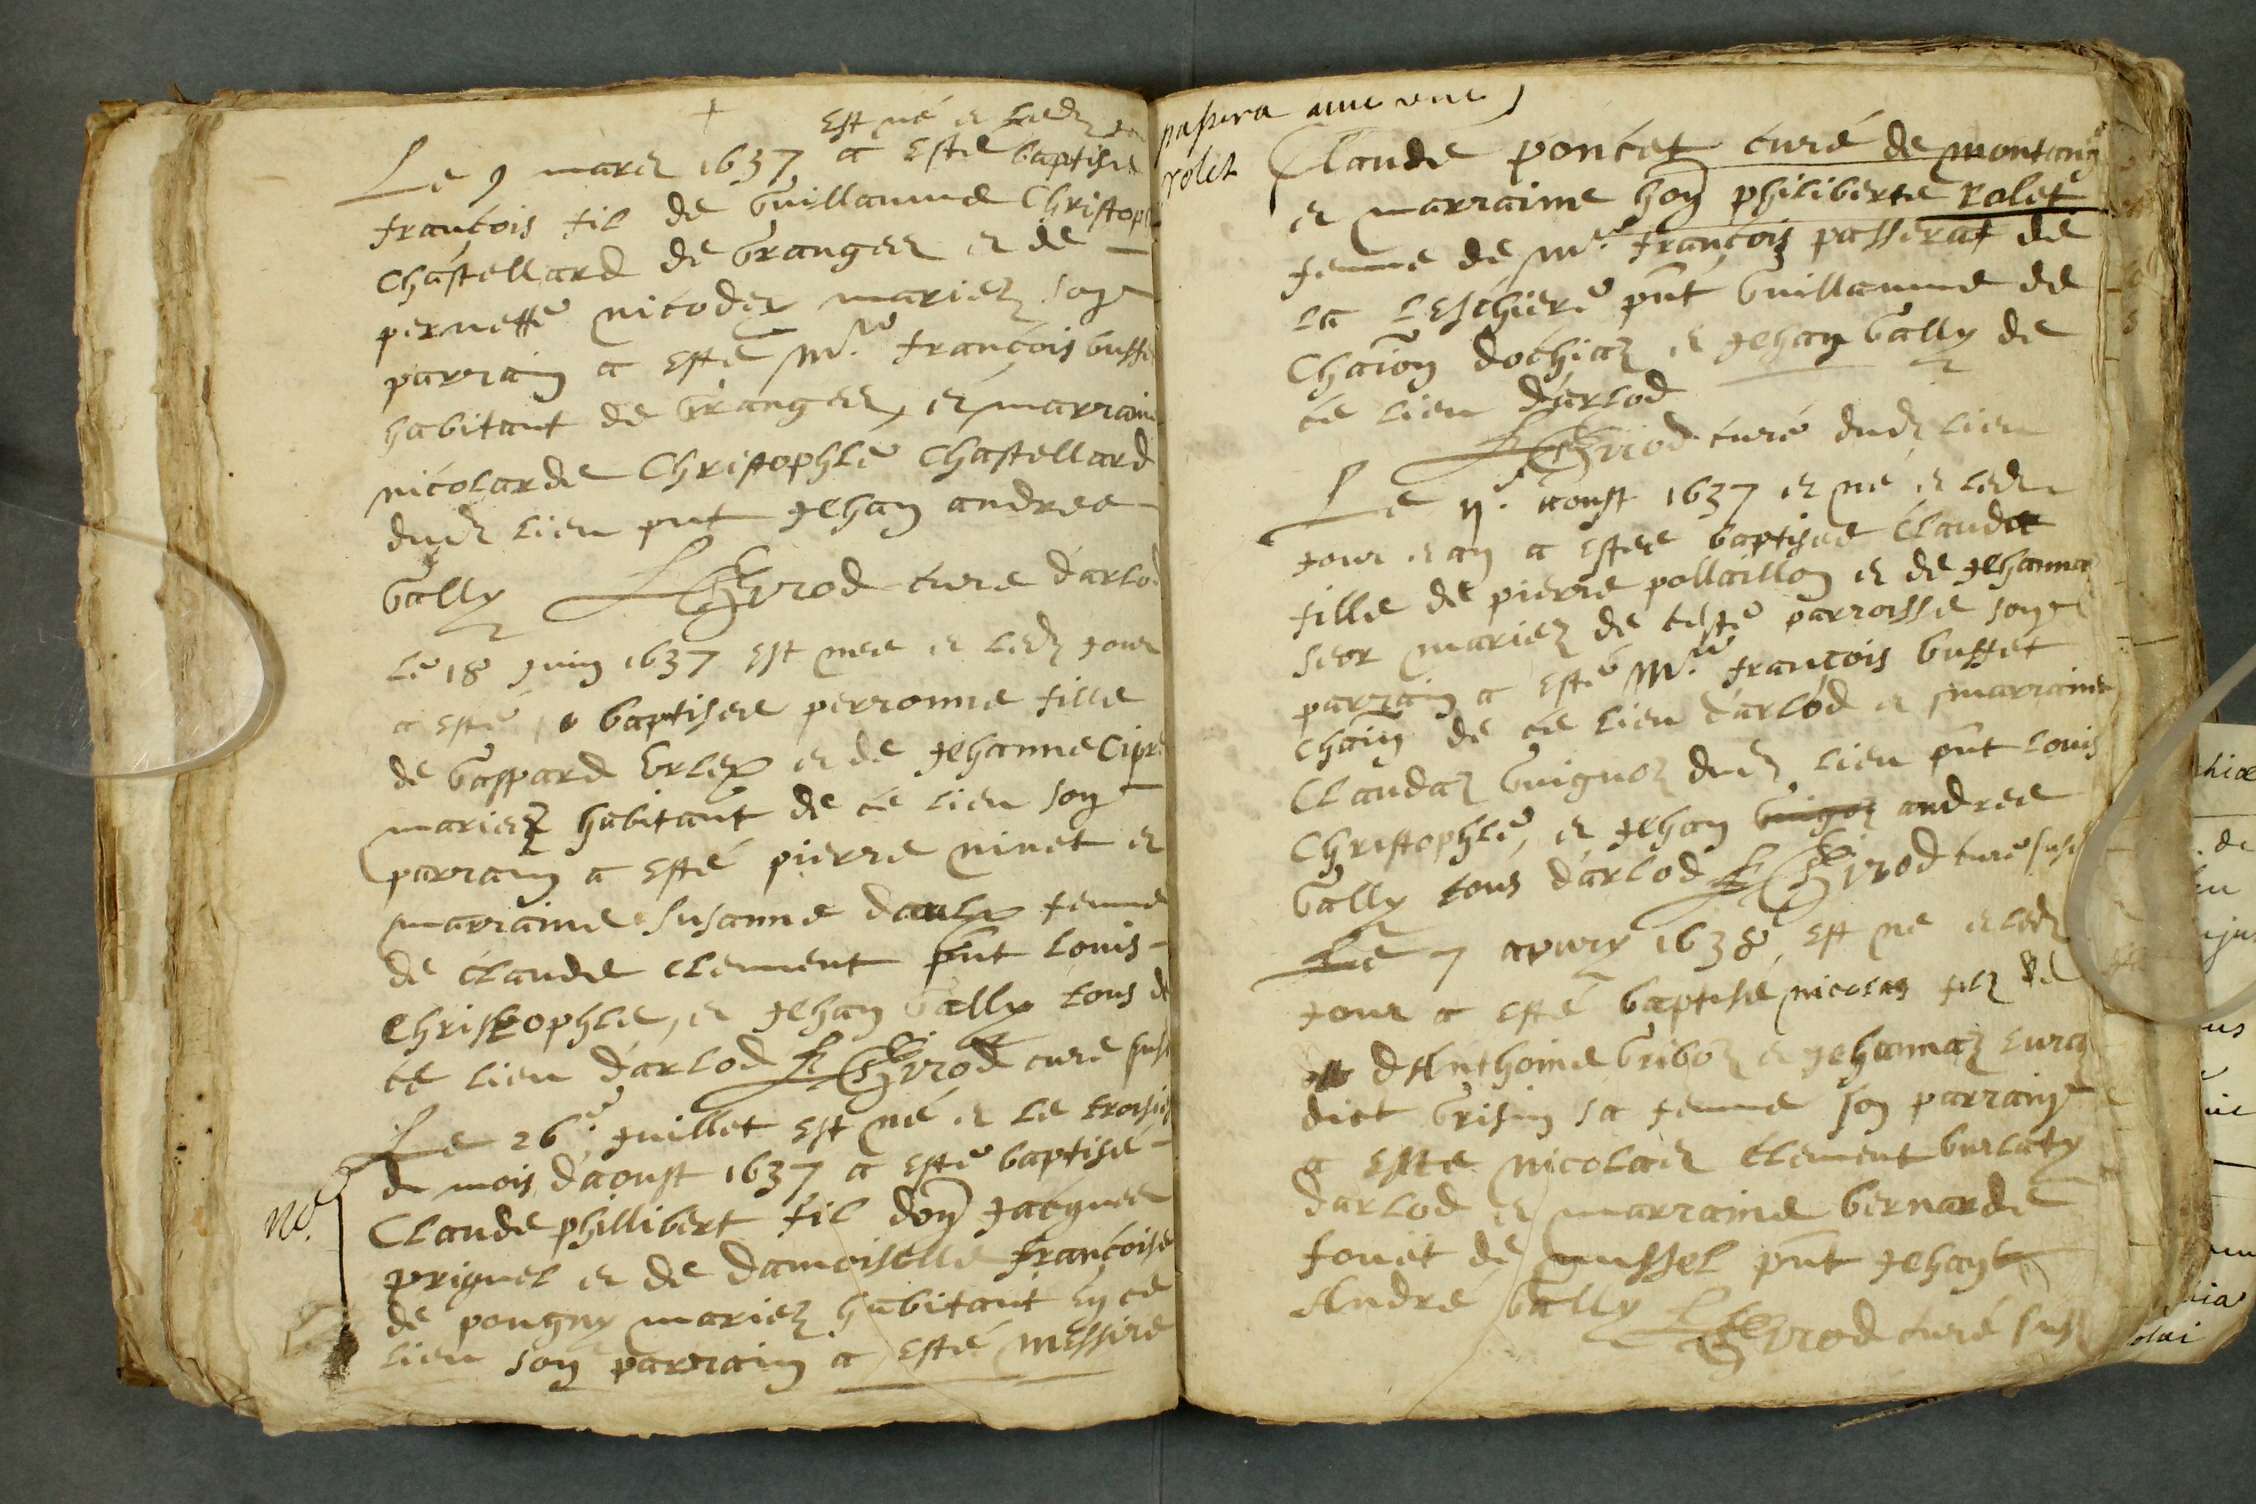 est né et ledt
Le 9 mars 1637 a este baptisé
francois fil de Guillaume Christoph
Chastellard de Granges et de
pernette nicoder mariez son
parrain a este Mre francois buffe
habitant de Granges, et marraine
nicolarde Christophle Chastellard
dudt lieu pnt Jehan andree
Gally Girod cure d'arlod
Le 18 Juin 1637 est nee et ledt jour
a esté baptisee perronne fille
de Gaspard et de Jehanne Cipre
mariez habitant de ce lieu son
parrain a esté pierre ninet et
marraine Susanne femme
de Claude Clement pnt Louis
Christophle, et Jehan Gally tous de
ce lieu d'arlod Girod curé susd
Le 26e Juillet est né et le troisie
du mois d'aoust 1637 a esté baptisé
no.
Claude phillibert fil d'hon Jacques
priquel et de damoiselle françoise
de pougny mariez habitant en ce
lieu son parrain a esté messire
passera avec une
rolet
Claude poncet curé de montang
et marraine hon philiberte rolet
femme de Mre françois passerat de
la Leschiere pnt Guillaume de
dochiaz et Jehan Gally de
ce lieu d'arlod
Girod curé dudt lieu
Le aoust 1637 et né et ledt
jour et an a estee baptisee Claude
fille de pierre pollaillon et de Jehanna
seor mariez de ceste parroisse son
parrain a esté Mre francois buffet
de ce lieu d'arlod et marraine
Claudaz Guignoz dudt lieu pnt Louis
Christophle, et Jehan andree
Gally tous d'arlod Girod curé susd
Le 7 apvril 1638, est né et ledt
jour a esté baptisé nicolas filz de
d'Anthoine Griboz et Jehannaz
dict Grisin sa femme son parrain
a esté nicolas Clement burlaty
d'arlod et marraine bernarde
fouet de mussel pnt Jehan
André Gally
Girod curé susd